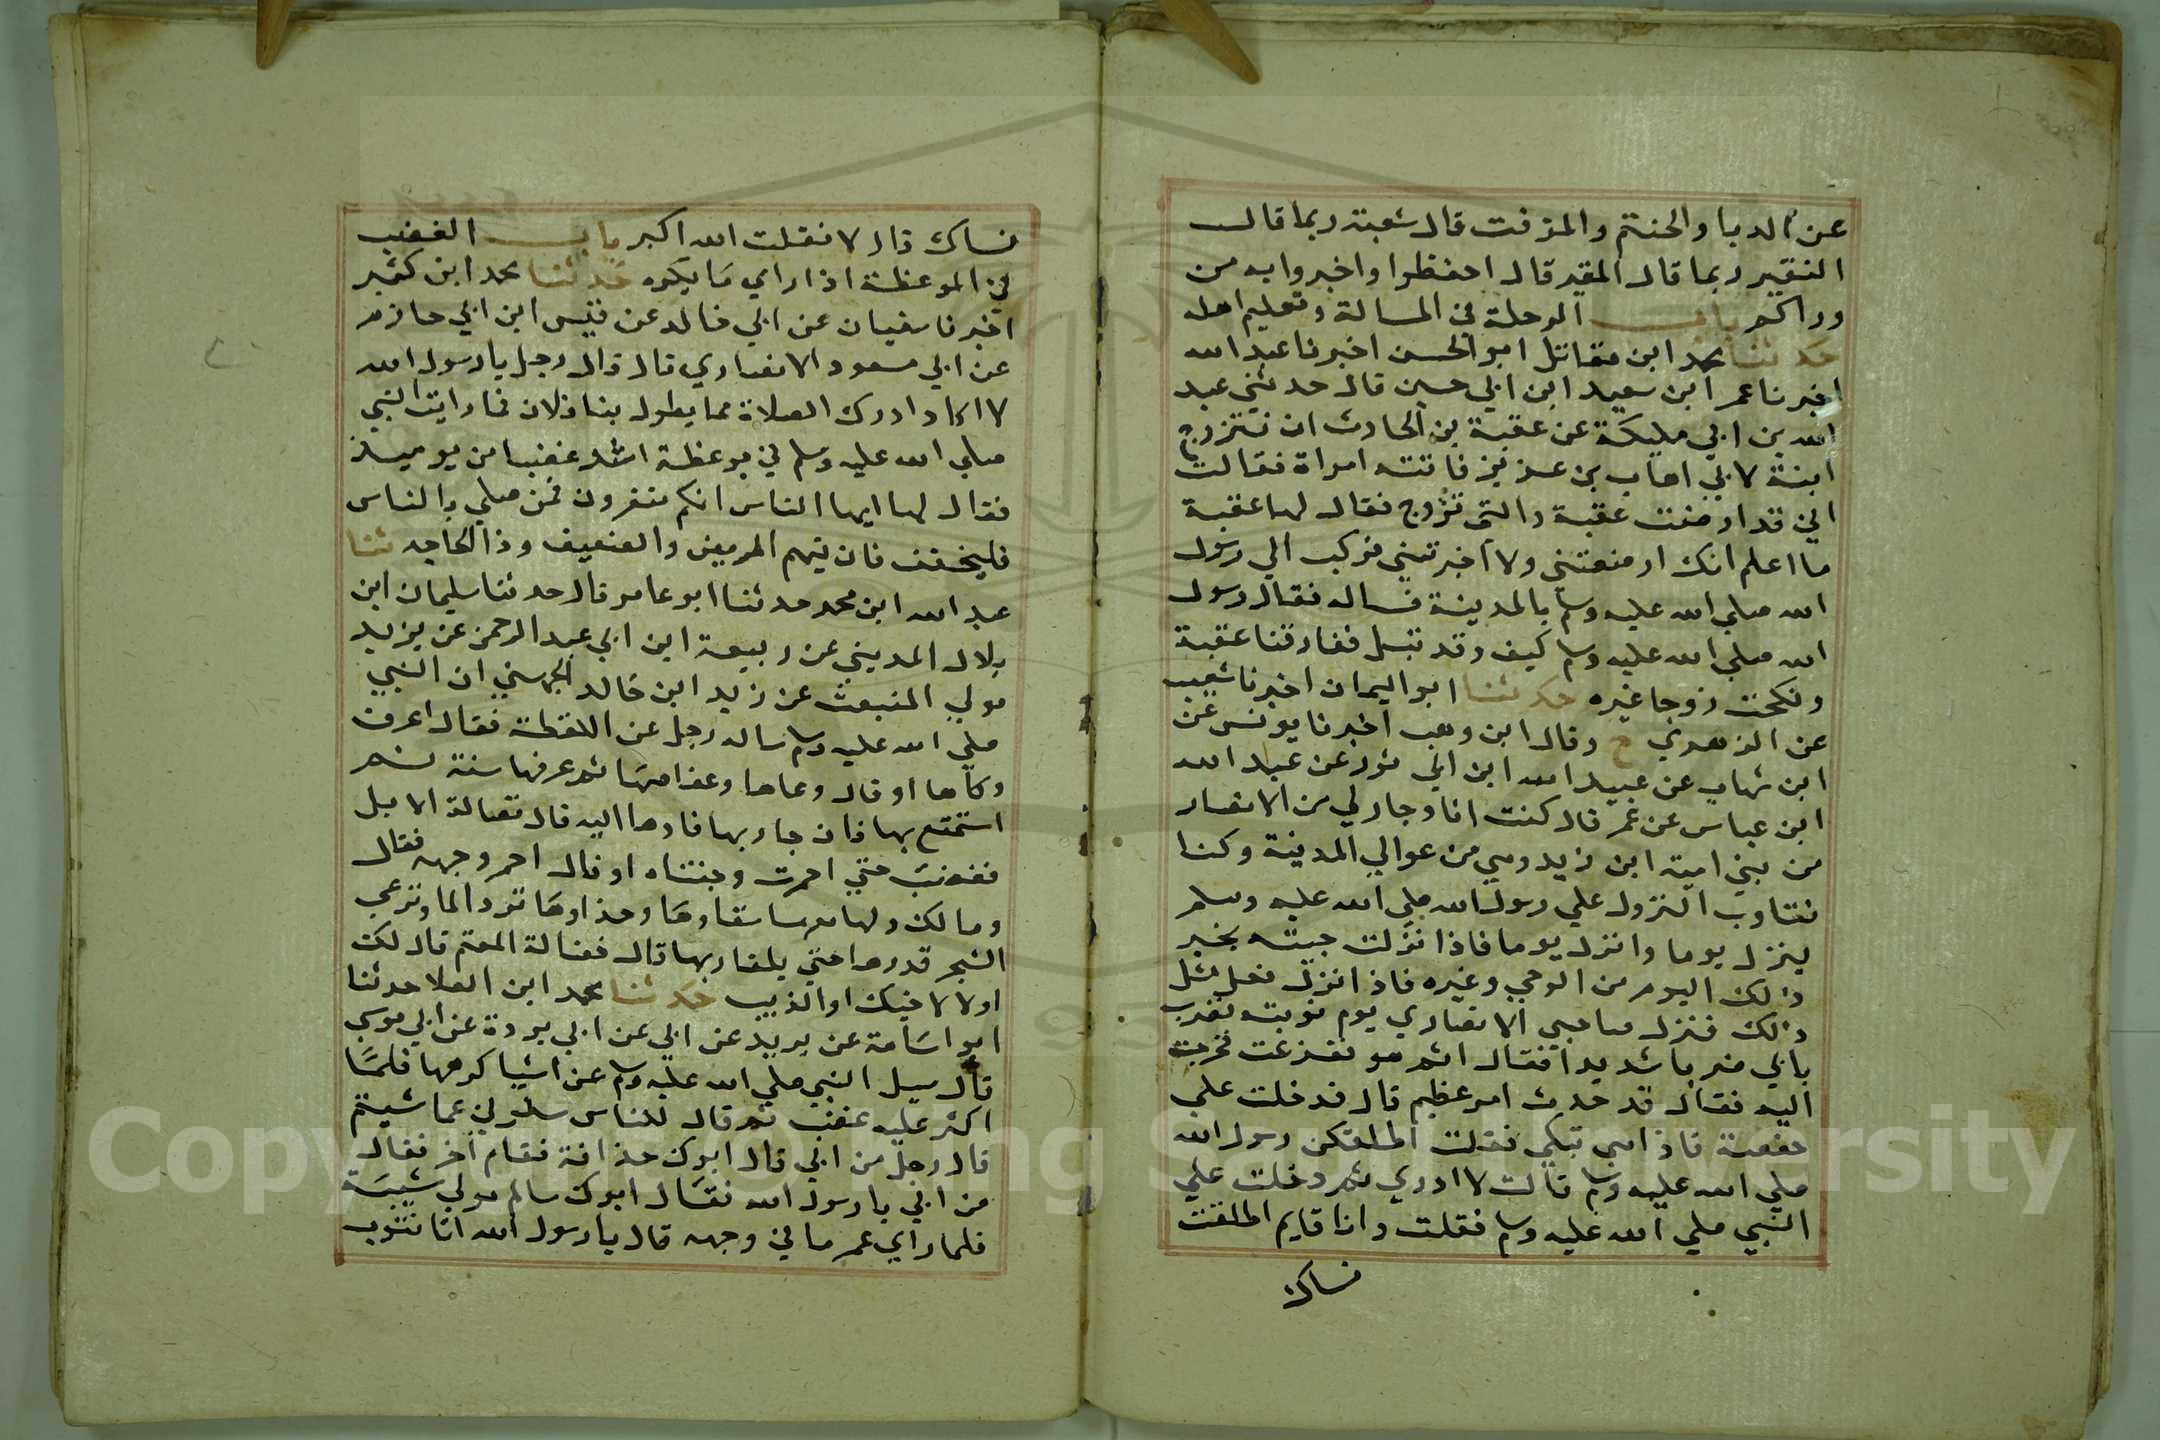 عن الدبا والحنتم والمزفت قال شعبة ربما قال
النقير ربما قال المقير قال احفظوا واخبروا به من
وراكم باب الرحلة في المسالة وتعليم اهله
حدثنا محمد ابن مقاتل ابو الحسن اخبرنا عبد الله
اخبرنا عمر ابن سعيد ابن ابي حسين قال حدثني عبد
الله بن ابي مليكة عن عقبة بن الحارث ان تتزوج
ابنة لابي اهاب بن عزيز فاتته امراة فقالت
اني قد ارضعت عقبة والتي تزوج فقال لها عقبة
ما اعلم انك ارضعتني ولا اخبرتني فركب الي رسول
الله صلي الله عليه وسلم بالمدينة فساله فقال رسول
الله صلي الله عليه وسلم كيف وقد قيل ففارقنا عقبة
ونكحت زوجا غيره حدثنا ابو اليمان اخبرنا شعيب
عن الزهري ح وقال ابن وهب اخبرنا يونس عن
ابن شهاب عن عبيد الله ابن ابي ثور عن عبد الله
ابن عباس عن عمر قال كنت انا وجار لي من الانصار
من بني امية ابن زيد وهي من عوالي المدينة وكنا
نتاوب النزول علي رسول الله صلي الله عليه وسلم
ينزل يوما وانزل يوما فاذا نزلت جيته بخبر
ذلك اليوم من الوحي وغيره فاذا نزل فعل مثل
ذلك فنزل صاحبي الانصاري يوم نوبته فضرب
بابي ضربا شديدا فقال اثم هو ففزعت فخرجت
اليه فقال قد حدث امر عظيم قال فدخلت علي
حفصة فاذا هي تبكي فقلت اطلقكن رسول الله
صلي الله عليه وسلم قالت لا ادري ثم دخلت علي
النبي صلي الله عليه وسلم فقلت وانا قايم اطلقت
نساك
نساك قال لا فقلت الله اكبر باب الغضب
في الموعظة اذا راي ما يكره حدثنا محمد ابن كثير
اخبرنا سفيان عن ابي خالد عن قيس ابن ابي حازم
عن ابي مسعود الانصاري قال قال رجل يا رسول الله
لا اكاد ادرك الصلاة مما يطول بنا فلان فما رايت النبي
صلي الله عليه وسلم في موعظة اشد غضبا من يوميذ
فقال لها ايها الناس انكم منفرون فمن صلي بالناس
فليخفف فان فيهم المريض والضعيف وذا الحاجه ثنا
عبد الله ابن محمد حدثنا ابو عامر قال حدثنا سليمان ابن
بلال المديني عن ربيعة ابن ابي عبد الرحمن عن يزيد
مولي المنبعث عن زيد ابن خالد الجهني ان النبي
صلي الله عليه وسلم ساله رجل عن اللقطة فقال اعرف
وكاها او قال وعاها وعفاصها ثم عرفها سنة ثم
استمتع بها فان جا ربها فادها اليه قال فضالة الابل
فغضب حتي احمرت وجنتاه او قال احمر وجهه فقال
ومالك ولها معها سقاوها وحذاوها ترد الما وترعي
الشجر فدرها حتي يلقا ربها قال فضالة الغنم قال لك
او لا لاخيك او الذيب حدثنا محمد ابن العلا حدثنا
ابو اسامة عن بريد عن ابي عن ابي بردة عن ابي موسي
قال سيل النبي صلي الله عليه وسلم عن اشيا كرهها فلما
اكثر عليه غضب ثم قال للناس سلوني عما شيتم
قال رجل من ابي قال ابوك حذافة فقام آخر فقال
من ابي يا رسول الله فقال ابوك سالم مولي شيبة
فلما راي عمر ما في وجهه قال يا رسول الله انا نتوب
Copyright © King Saud University